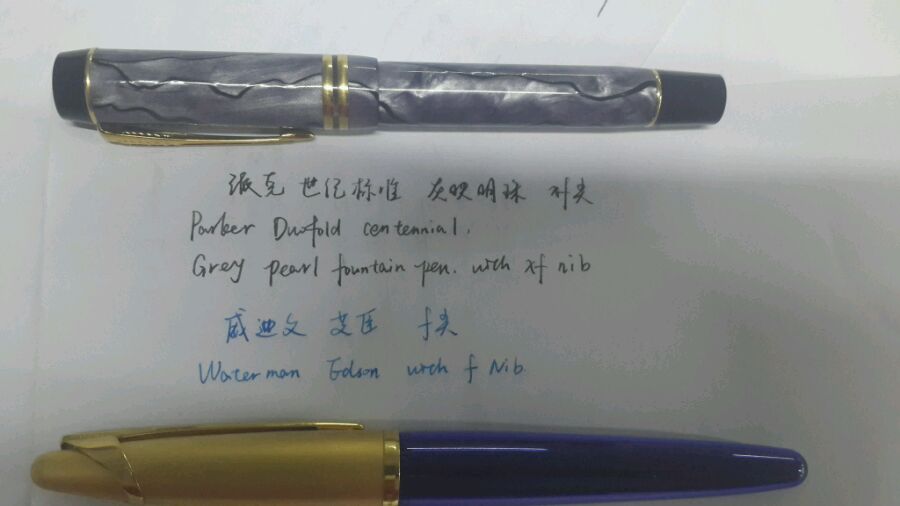 派克 世纪标准 灰映明珠 xf尖
Parker Duofold centennial.
Grey pearl fountain pen. with xf nib
威迪文 艾臣 f尖
Waterman Edson with f Nib